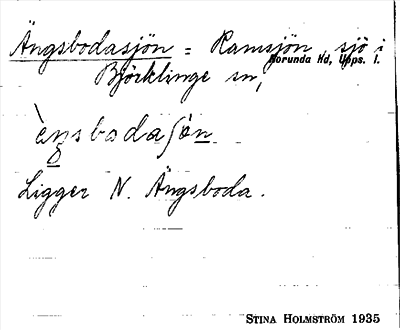 Ängsbodasjön = Ramsjön, sjö i
Norunda Hd, Upps. l.
Björklinge sn,
Ligger N. Ängsboda.
STINA HOLMSTRÖM 1935